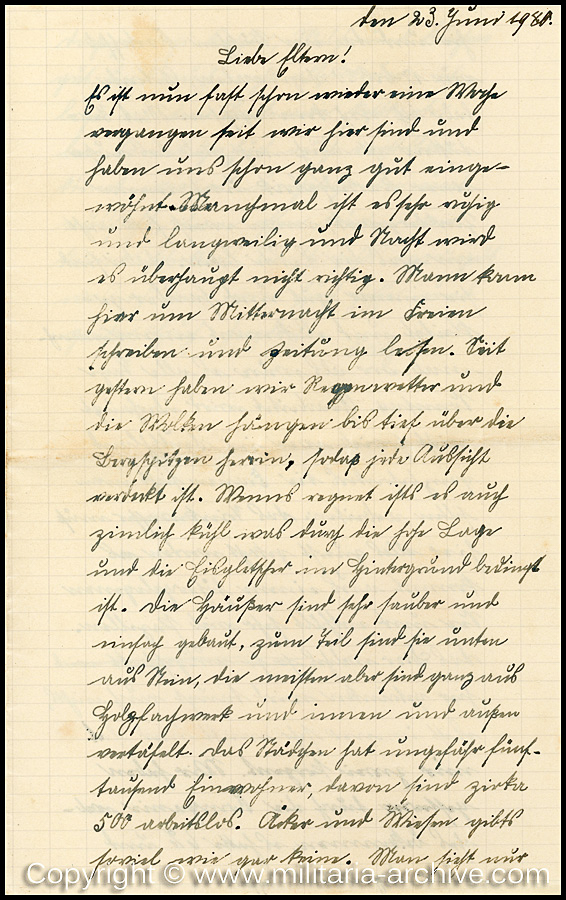 den 23. Juni 1940.
Liebe Eltern!
Es ist nun fast schon wieder eine Woche
vergangen seit wir hier sind und
haben uns schon ganz gut einge-
wöhnt. Manchmal ist es sehr ruhig
und langweilig und Nacht wird
es überhaupt nicht richtig. Mann kann
hier um Mitternacht im Freien
schreiben und Zeitung lesen. Seit
gestern haben wir Regenwetter und
die Wolken hängen bis tief über die
Bergspitzen herein, sodaß jede Aussicht
verdeckt ist. Wenns regnet ists es auch
zimlich kühl was durch die hohe Lage
und die Eisgletscher im Hintergrund bedingt
ist. Die Häußer sind sehr sauber und
einfach gebaut, zum Teil sind sie unten
aus Stein, die meisten aber sind ganz aus
Holzfachwerk und innen und außen
vertäfelt. Das Städchen hat ungefähr fünf-
tausend Einwohner, davon sind zirka
500 arbeitslos. Äcker und Wiesen gibts
soviel wie gar keine. Man sieht nur
Copyright © www.militaria-archive.com